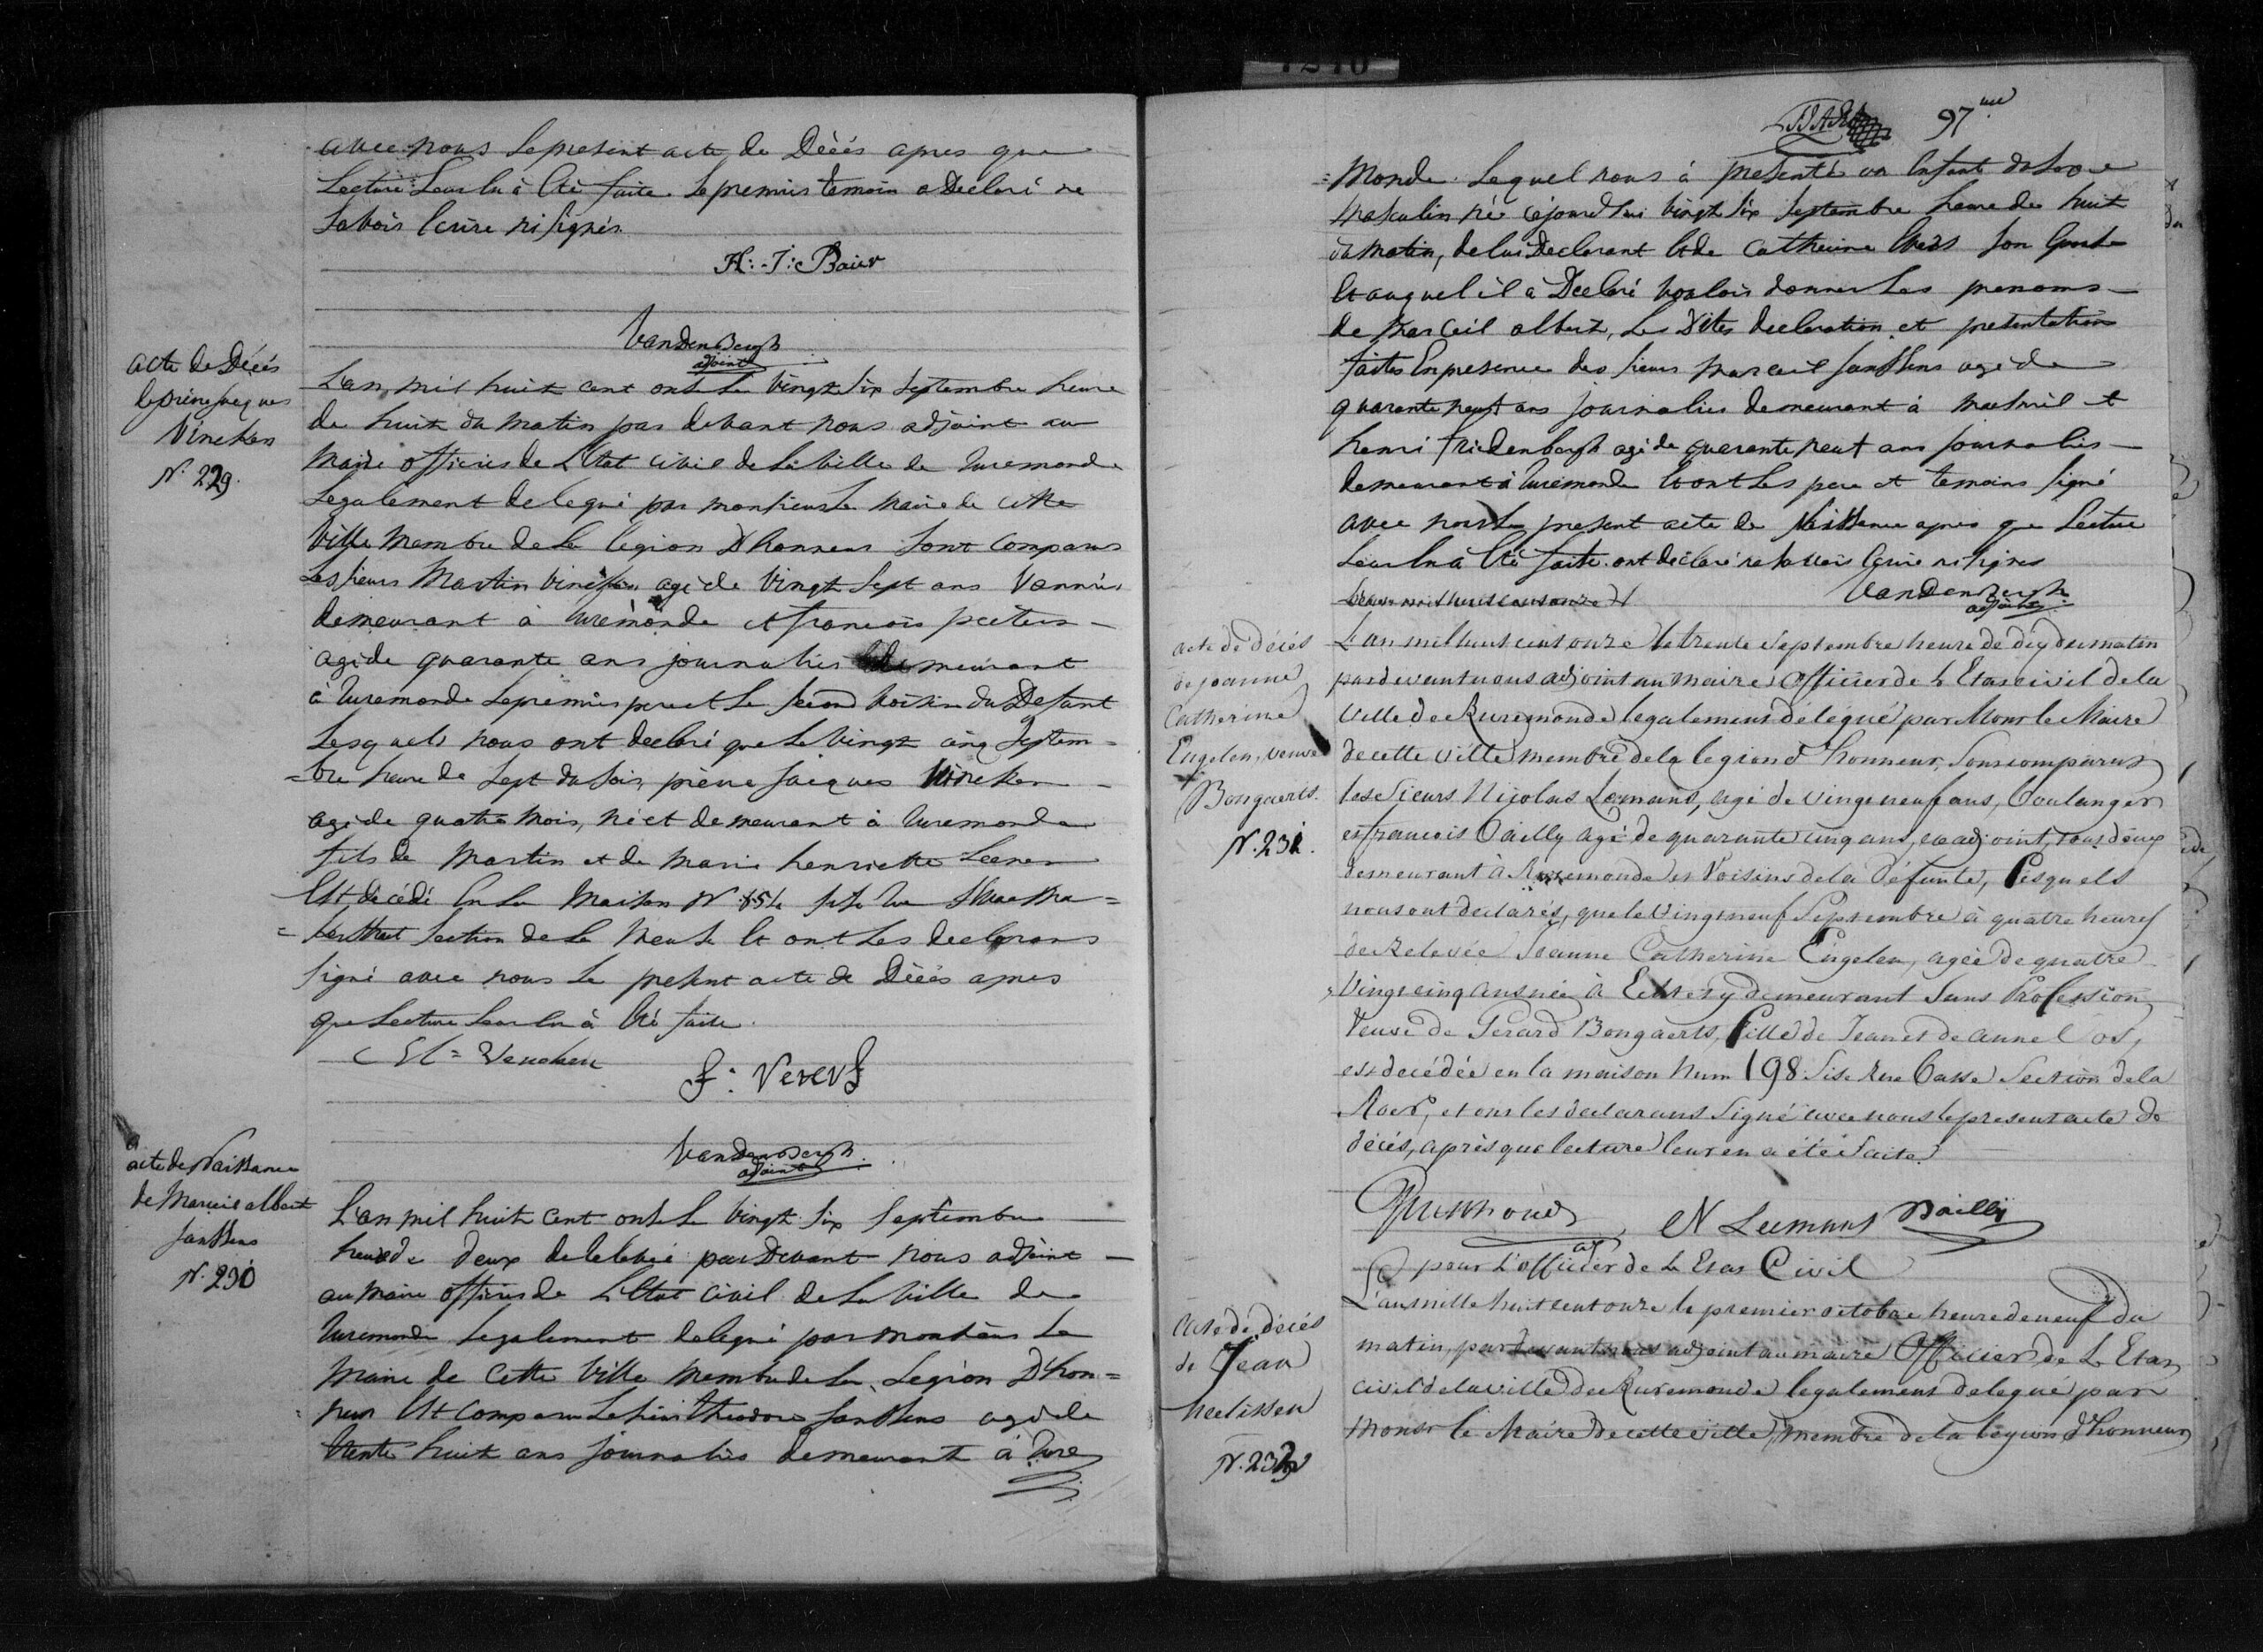 avec nous le present acte de Décès apres que
Lecture Leur en à Eté faite. le premier temoin a Declaré ne
Savoir Ecrire ni Signer
H: J: Baur
VandenBergh
adjoint
acte de Décés
de pierre Jacques
Vincken
N. 229.
L'an mil huit cent onze le vingt Six Septembre heure
de huit du matin par devant nous adjoint au
Maire officier de L'Etat civil de la Ville de Ruremonde
Legalement delegué par monsieur le Maire de cette
Ville Membre de la legion D'honneur Sont Comparus
Les Sieurs Martin Vincken agé de Vingt Sept ans Vannier
demeurant à Ruremonde et francois peeters
agé de quarante ans journalier demeurant
à Ruremonde le premier pere et le Second Voisin du Defunt
Lesquels nous ont declaré que le Vingt cinq Septem=
=bre heure de Sept du Soir, pierre Jacques Vincken
agé de quatre mois, né et demeurant à Ruremonde
fils de Martin et de Marie henriette Leenen
Est décédé En La Maison N. Sise Rue
Section de la Meuse Et ont Les declarans
Signé avec nous Le present acte de Décès apres
que Lecture Leur en à Eté faite.
M= Vencken
VandenBergh
adjoint
acte de Naissance
de Marceil albert
Janssens
N. 230
L'an mil huit cent onze Le Vingt Six Septembre
heure de deux de Relevée par Devant nous adjoint
au Maire officier de L'Etat civil de La Ville de
Ruremonde Legalement delegué par Monsieur Le
Maire de Cette Ville Membre de La Legion D'hon=
neur Est Comparu Le Sieur Theodore Janssens agé de
trente huit ans journalier demeurant à Rure
97me
=monde Lequel nous à presenté un Enfant du Sexe
Masculin né cejourd'hui vingt Six Septembre heure de huit
du matin, de lui Declarant Et de Catherine Son
Et auquel il à Declaré Vouloir donner Les prenoms
de Marceil albert, Les Dites declaration et presentation
faites En presence des Sieurs Marceil Janssens agé de
quarante neuf ans journalier demeurant à et
henri fridenbergh agé de quarante neuf ans journalier
demeurant à Ruremonde Et ont Les pere et temoins Signé
avec nous Le present acte de Naissance apres que Lecture
Leur En à Eté faite. ont declaré ne Savoir Ecrire ni Signer
L'an mil huit cent onze Le
VandenBergh
adjoint
acte de décés
de Joanne
Catherine
Engelen, veuve
Bongaerts.
N. 231.
L'an mil huit cent onze le trente Septembre heure de dix du matin
par devant nous adjoint au maire Officier de L'Etat civil de la
Ville de Ruremonde legalement délégué par Monsr le Maire
de cette Ville membre de la legion d'honneur, Sont comparus
les Sieurs Nicolas Lemans, agé de vingt neuf ans, Boulanger
et francois Bailly agé de quarante cinq ans, exadjoint, tous deux
demeurant à Ruremonde et Voisins de la Défunte, Lesquels
nous ont declarés, que le Vingt neuf Septembre à quatre heures
de Relevée Joanne Catherine Engelen, agée de quatre
Vingt cinq ans née à Echt et y demeurant Sans Profession
Veuve de Gerard Bongaerts, fille de Jean et de anne
est decédée en la maison Num 198. Sise Rue Basse Section de la
Roer, et ont les declarans Signé avec nous le present acte de
décés, aprés que lecture leur en a été faite.
N Leemans Bailly
pour L'officier de L'Etat Civil
Acte de décés
de Jean
Neelissen
N. 232
L'an mille huit cent onze le premier octobre heure de neuf du
matin, par devant nous adjoint au maire Officier de L'Etat
civil de la ville de Ruremonde legalement delegué par
Monsr le Maire de cette ville membre de la legion d'honneur